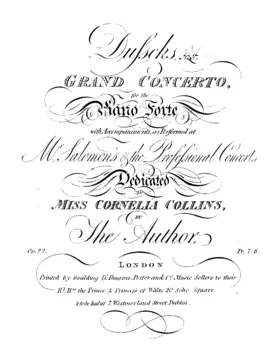 Dusseks
GRAND CONCERTO,
for the
Piano Forte
with Accompaniments, as Performed at
Mr. Salomon's & the Professional Concerts
Dedicated
to
MISS CORNELIA COLLINS,
BY
The Author.
Op. 22. Pr. 7/6.
LONDON
Printed by Goulding D'Almaine, Potter and Co. Music Sellers to their
R.l H.ss the Prince & Princess of Wales 20 Soho Square.
& to be had at 7, Westmorland Street Dublin.